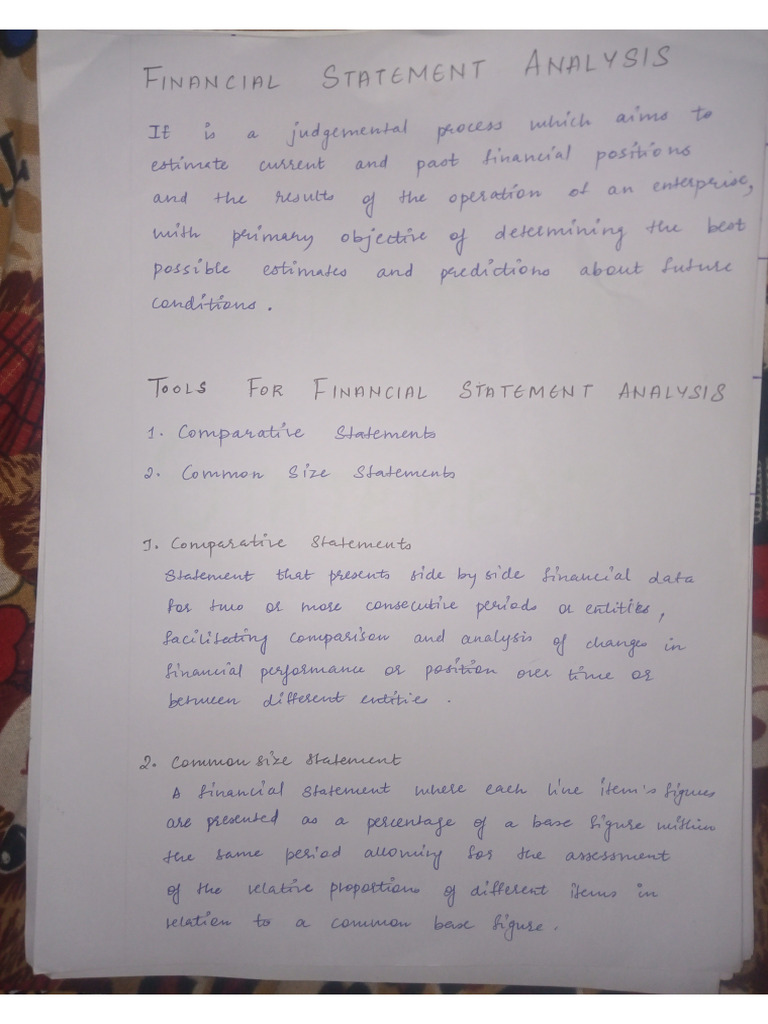 FINANCIAL STATEMENT ANALYSIS
It is a judgemental process which aims to
estimate current and past financial positions
and the results of the operation of an enterprise,
with primary objective of determining the best
possible estimates and predictions about future
conditions.
TOOLS FOR FINANCIAL STATEMENT ANALYSIS
1. Comparative Statements
2. Common Size Statements
1. Comparative Statements
Statement that presents side by side financial data
for two or more consecutive periods or entities,
facilitating comparison and analysis of changes in
financial performance or position over time or
between different entities.
2. Common size Statement
A financial statement where each line item's figures
are presented as a percentage of a base figure within
the same period allowing for the assessment
of the relative proportions of different items in
relation to a common base figure.